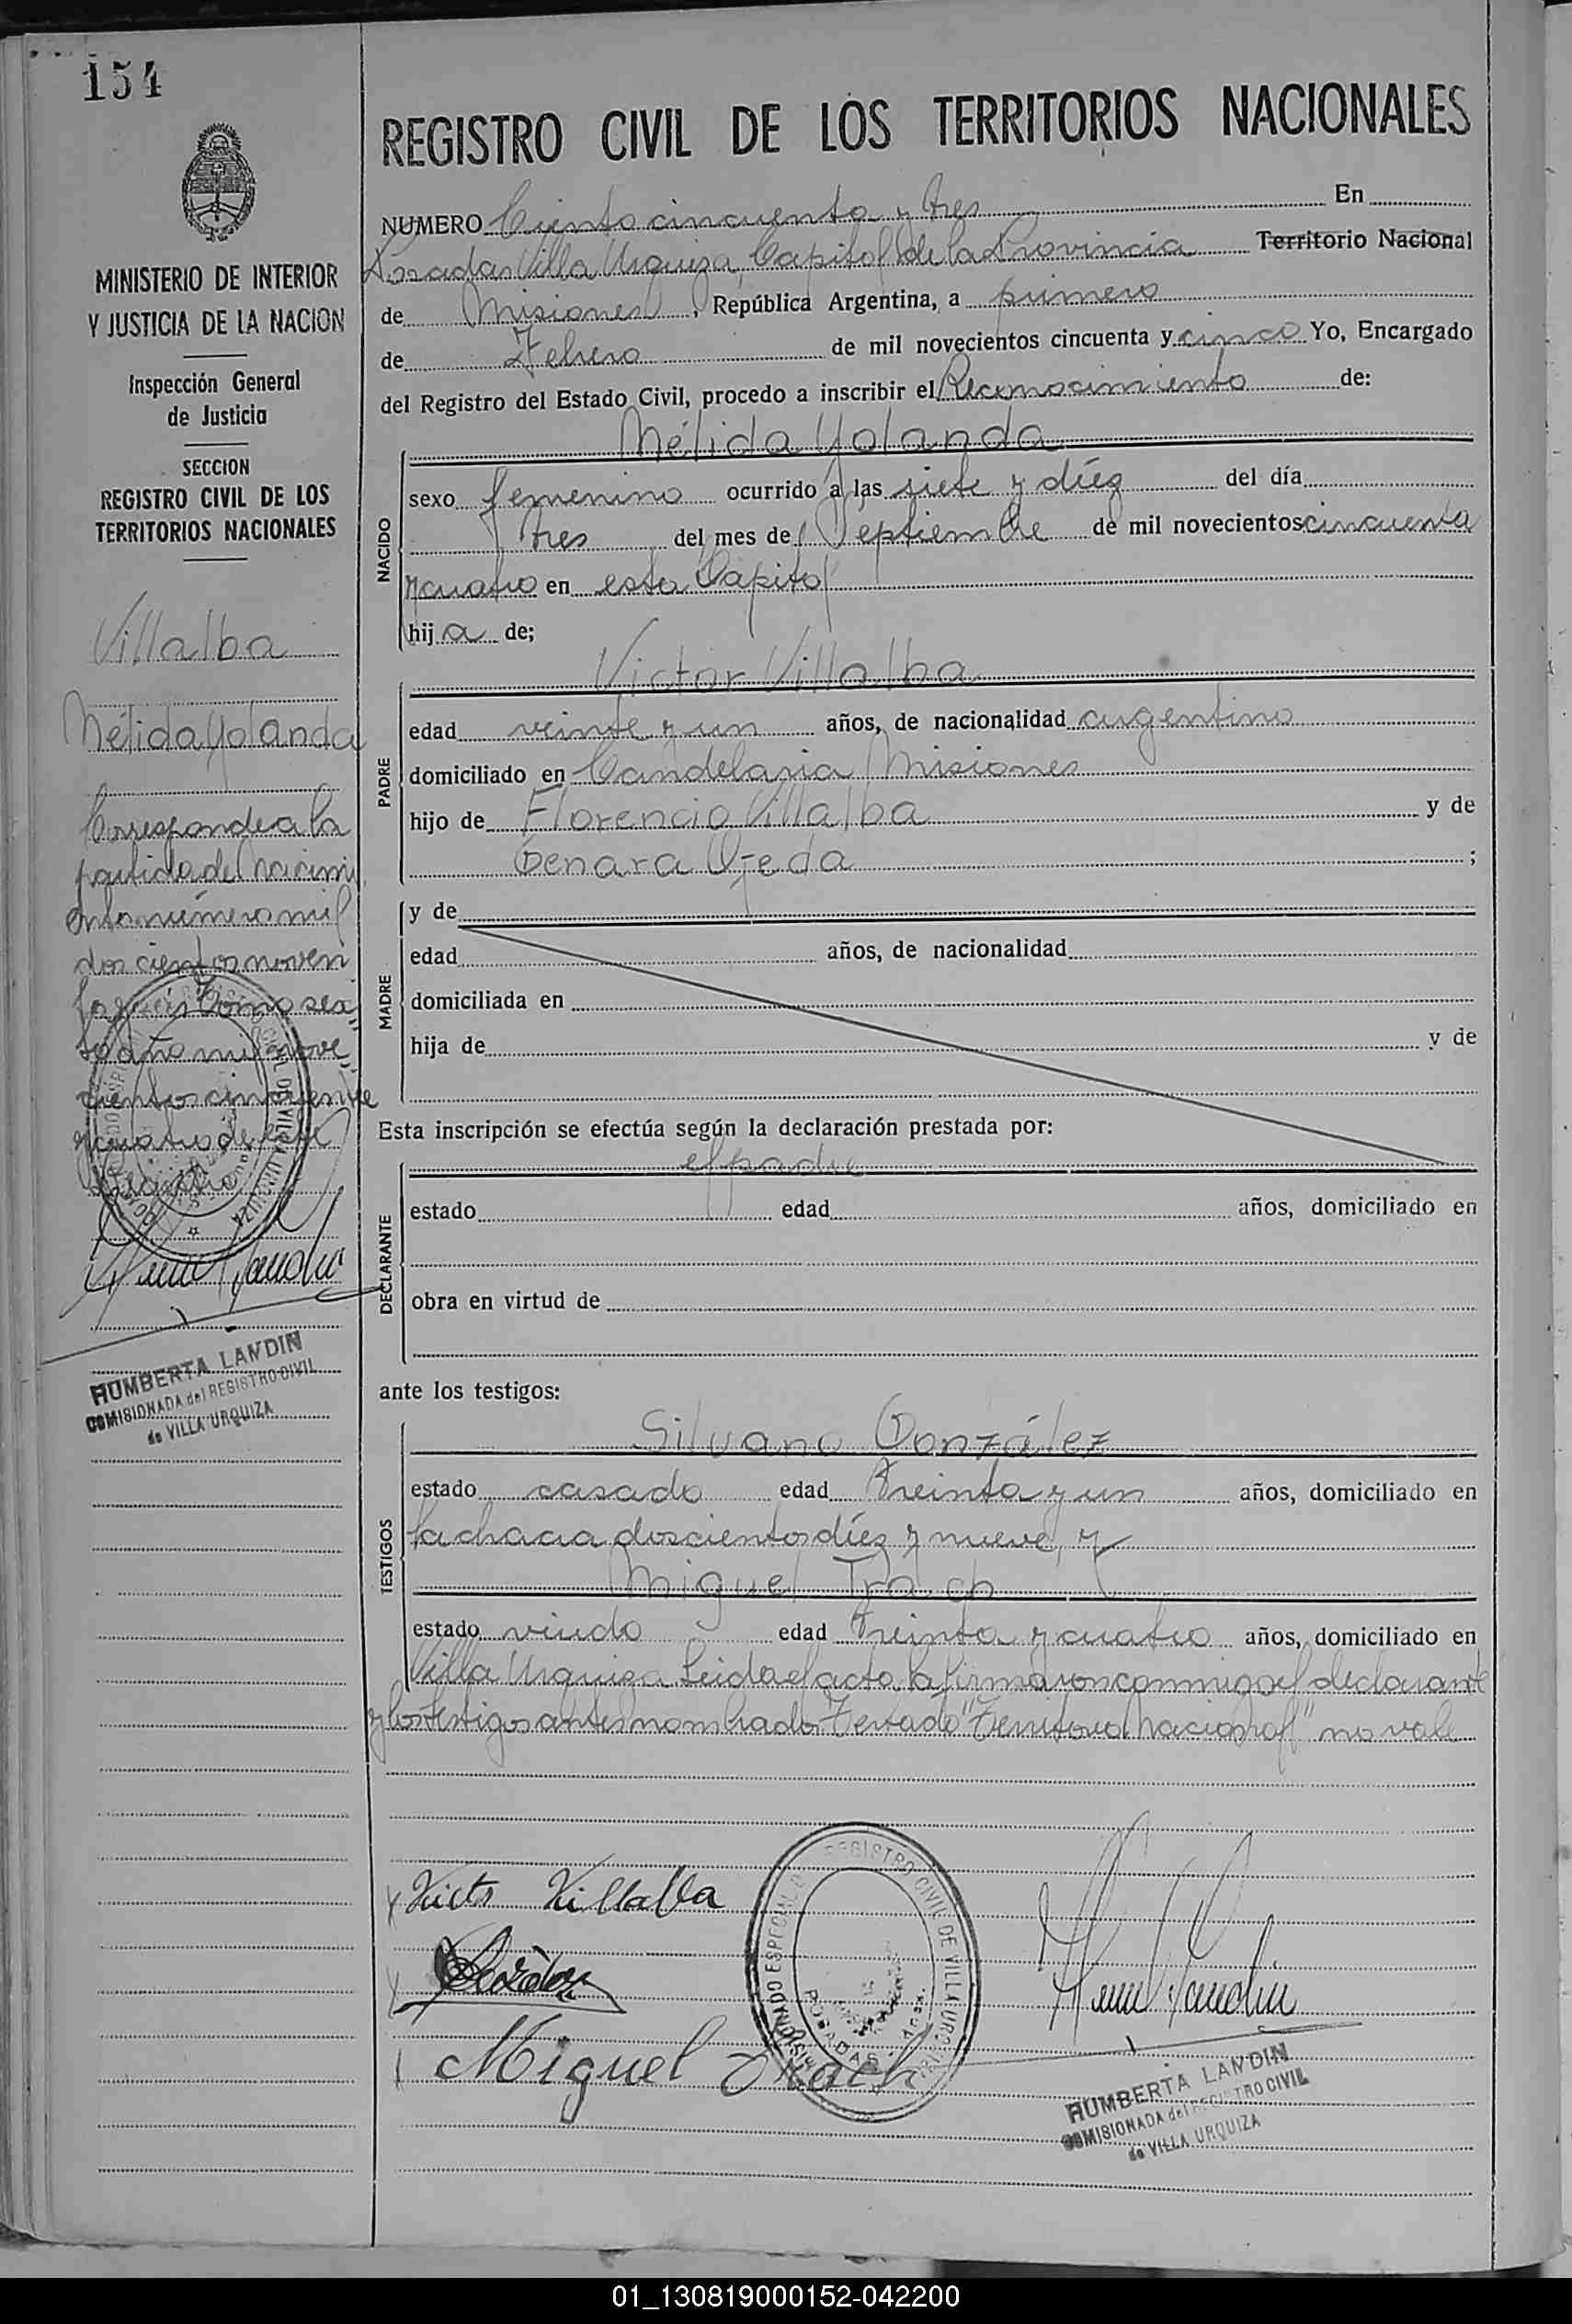 154
MINISTERIO DE INTERIOR
Y JUSTICIA DE LA NACION
Inspección General
de Justicia
SECCION
REGISTRO CIVIL DE LOS
TERRITORIOS NACIONALES
Villalba
Nélida Yolanda
Corresponde a la
partida del nacimi
ento número mil
doscientos noven
ta y seis Tomo sex
to año mil nove
cientos cincuenta
y cuatro de este
Registro
HUMBERTA LANDIN
COMISIONADA del REGISTRO CIVIL
de VILLA URQUIZA
REGISTRO CIVIL DE LOS TERRITORIOS NACIONALES
NUMERO Ciento cincuenta y tres En
Posadas Villa Urquiza, Capital de la Provincia Territorio Nacional
de Misiones, República Argentina, a primero
de Febrero de mil novecientos cincuenta y cinco Yo, Encargado
del Registro del Estado Civil, procedo a inscribir el Reconocimiento de:
NACIDO
Nélida Yolanda
sexo femenino ocurrido a las siete y diéz del día
tres del mes de Septiembre de mil novecientos cincuenta
y cuatro en esta Capital
hija de;
PADRE
Victor Villalba
edad veinte y un años, de nacionalidad argentino
domiciliado en Candelaria Misiones
hijo de Florencio Villalba y de
Genara Ojeda ;
MADRE
y de
edad años, de nacionalidad
domiciliada en
hija de y de
Esta inscripción se efectúa según la declaración prestada por:
DECLARANTE
el padre
estado edad años, domiciliado en
obra en virtud de
ante los testigos:
TESTIGOS
Silvano González
estado casado edad treinta y un años, domiciliado en
la chacra doscientos diéz y nueve, y
Miguel Trach
estado viudo edad treinta y cuatro años, domiciliado en
Villa Urquiza. Leida el acta, la firmaron conmigo el declarante
y los testigos antes nombrado. Testado "Territorio Nacional" no vale
Victor Villalba
Miguel Trach
REGISTRO CIVIL DE VILLA URQUIZA
POSADAS
HUMBERTA LANDIN
COMISIONADA del REGISTRO CIVIL
de VILLA URQUIZA
01_130819000152-042200